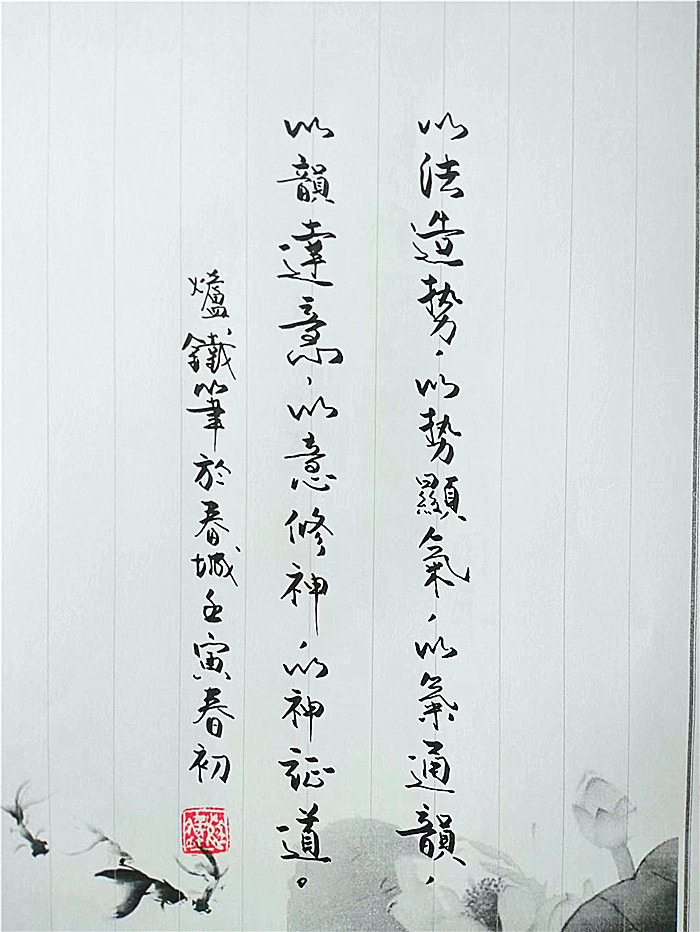 以法造势，以势顯氣，以氣通韻，
以韻達意，以意修神，以神証道。
爐鐵筆於春城壬寅春初